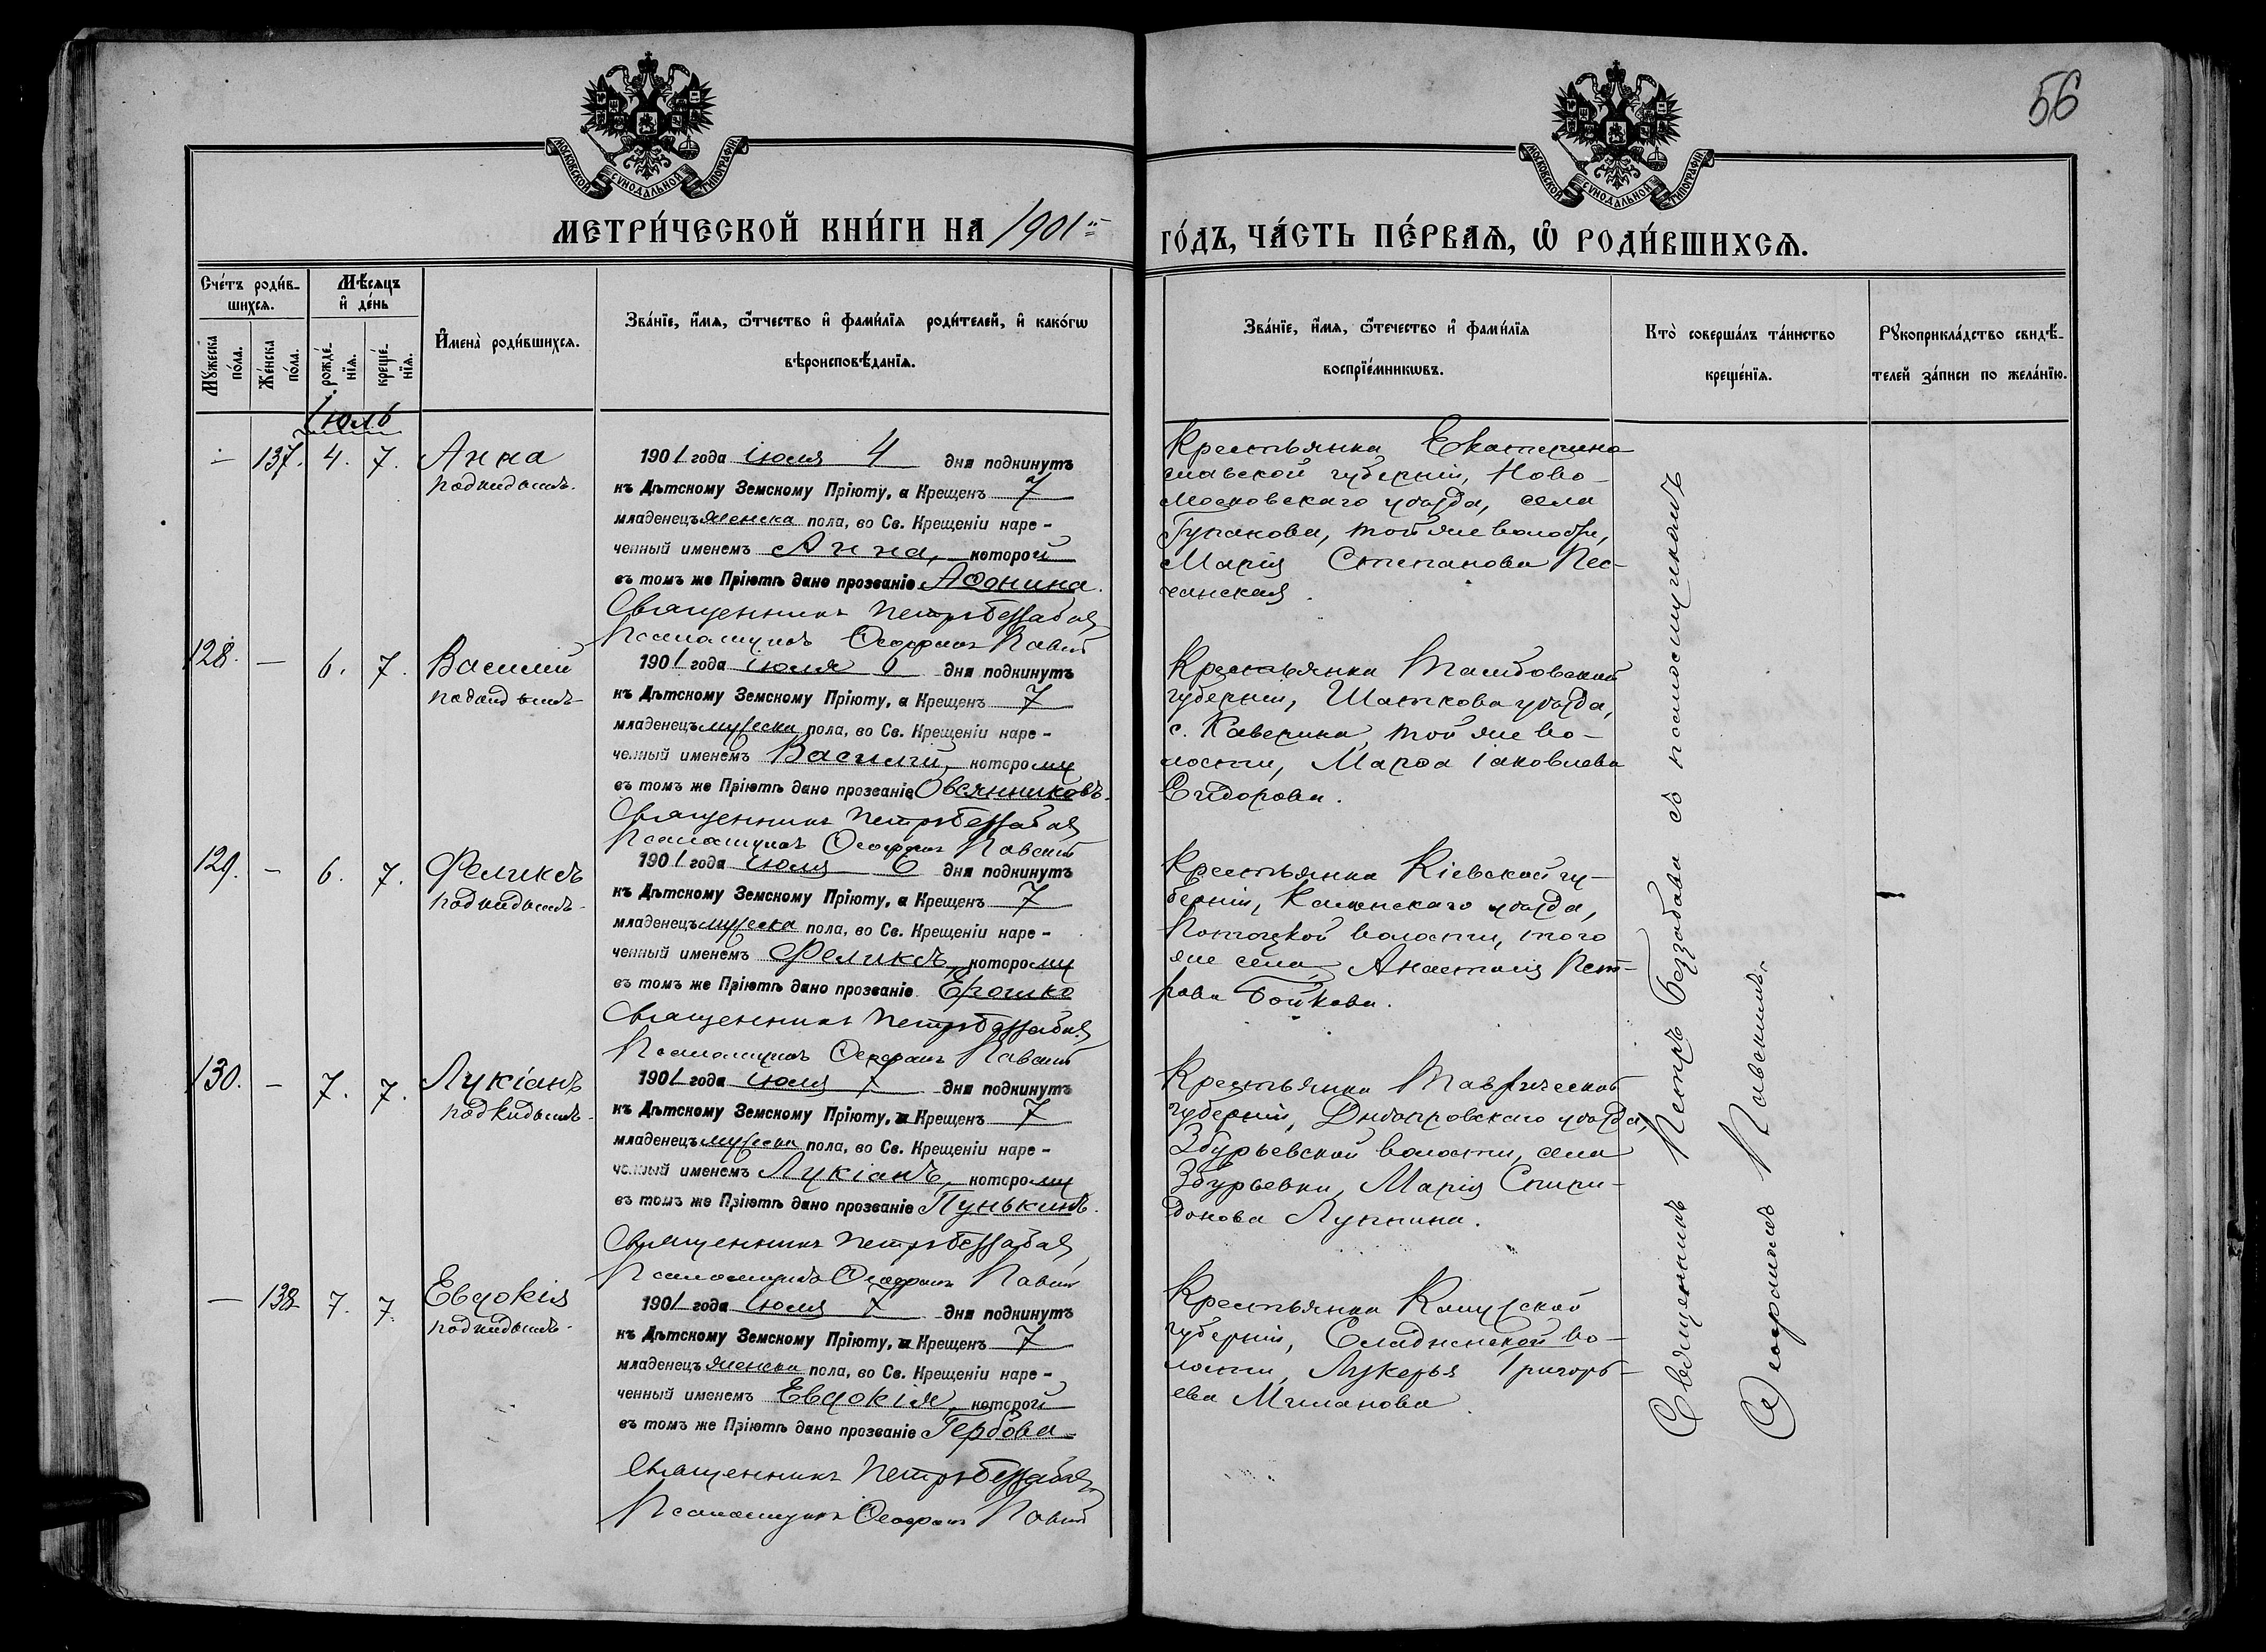 56
МОСКОВСКОЙ СѴНОДАЛЬНОЙ ТИПОГРАФІИ
МОСКОВСКОЙ СѴНОДАЛЬНОЙ ТИПОГРАФІИ
МЕТРИ́ЧЕСКОЙ КНИ́ГИ НА 1901й
ГО́ДЪ, ЧА́СТЬ ПЕ́РВАѦ, Ѡ҆ РОДИ́ВШИХСѦ.
Сче́тъ роди́в-
шихсѧ.
Мꙋ́жеска по́ла.
Же́нска по́ла.
Мѣ́сѧцъ
и҆ де́нь
рожде́-
нїѧ.
креще́-
нїѧ.
И҆мена̀ роди́вшихсѧ.
Зва́нїе, и҆́мѧ, ѻ҆́тчество и҆ фами́лїѧ роди́телей, и҆ како́гѡ
вѣроисповѣ́данїѧ.
Зва́нїе, и҆́мѧ, ѻ҆те́чество и҆ фами́лїѧ
воспрїе́мникѡвъ.
Кто̀ соверша́лъ та́инство
креще́нїѧ.
Рꙋкоприкла́дство свидѣ́-
телей за́писи по жела́нїю.
Іюль
– 137. 4. 7. Анна
подкидышъ.
1901 года іюля 4 дня подкинутъ
къ Дѣтскому Земскому Пріюту, а Крещенъ 7
младенецъ женска пола, во Св. Крещеніи наре-
ченный именемъ Анна, которой
въ томъ же Пріютѣ дано прозваніе Афонина.
Священникъ Петръ Беззабава
Псаломщикъ Феофанъ Павскій
Крестьянка Екатерино
славской губерніи, Ново-
московскаго уѣзда, села
Гупаловки, той же волости,
Марія Степанова Пес-
чанская.
128. – 6. 7. Василій
подкидышъ
1901 года іюля 6 дня подкинутъ
къ Дѣтскому Земскому Пріюту, а Крещенъ 7
младенецъ мужеска пола, во Св. Крещеніи наре-
ченный именемъ Василій, которому
въ томъ же Пріютѣ дано прозваніе Овсянниковъ.
Священникъ Петръ Беззабава
Псаломщикъ Феофанъ Павскій
Крестьянка Тамбовской
губерніи, Шаткова уѣзда,
с. Каверина, той же во-
лости, Марфа Іаковлева
Сидорова.
129. – 6. 7. Феликсъ
подкидышъ.
1901 года іюля 6 дня подкинутъ
къ Дѣтскому Земскому Пріюту, а Крещенъ 7
младенецъ мужеска пола, во Св. Крещеніи наре-
ченный именемъ Феликсъ, которому
въ томъ же Пріютѣ дано прозваніе Ерошко
Священникъ Петръ Беззабава
Псаломщикъ Феофанъ Павскій
Крестьянка Кіевской гу-
берніи, Каневскаго уѣзда,
Потоцкой волости, того
же села, Анастасія Пет-
рова Бойкова.
130. – 7. 7. Лукіанъ
подкидышъ.
1901 года іюля 7 дня подкинутъ
къ Дѣтскому Земскому Пріюту, и Крещенъ 7
младенецъ мужеска пола, во Св. Крещеніи наре-
ченный именемъ Лукіанъ, которому
въ томъ же Пріютѣ дано прозваніе Пунькинъ.
Священникъ Петръ Беззабава
Псаломщикъ Феофанъ Павскій
Крестьянка Таврической
губерніи, Днѣпровскаго уѣзда,
Збурьевской волости, села
Збурьевки, Марія Спири-
донова Лупкина.
– 138 7. 7. Евдокія
подкидышъ.
1901 года іюля 7 дня подкинутъ
къ Дѣтскому Земскому Пріюту, и Крещенъ 7
младенецъ женска пола, во Св. Крещеніи наре-
ченный именемъ Евдокія, которой
въ томъ же Пріютѣ дано прозваніе Гербова
Священникъ Петръ Беззабава
Псаломщикъ Феофанъ Павскій
Крестьянка Калужской
губерніи, во-
лости, Лукерья Григорь-
ева Миланова.
Священникъ Петръ Беззабава съ псаломщикомъ
Феофаномъ Павскимъ.